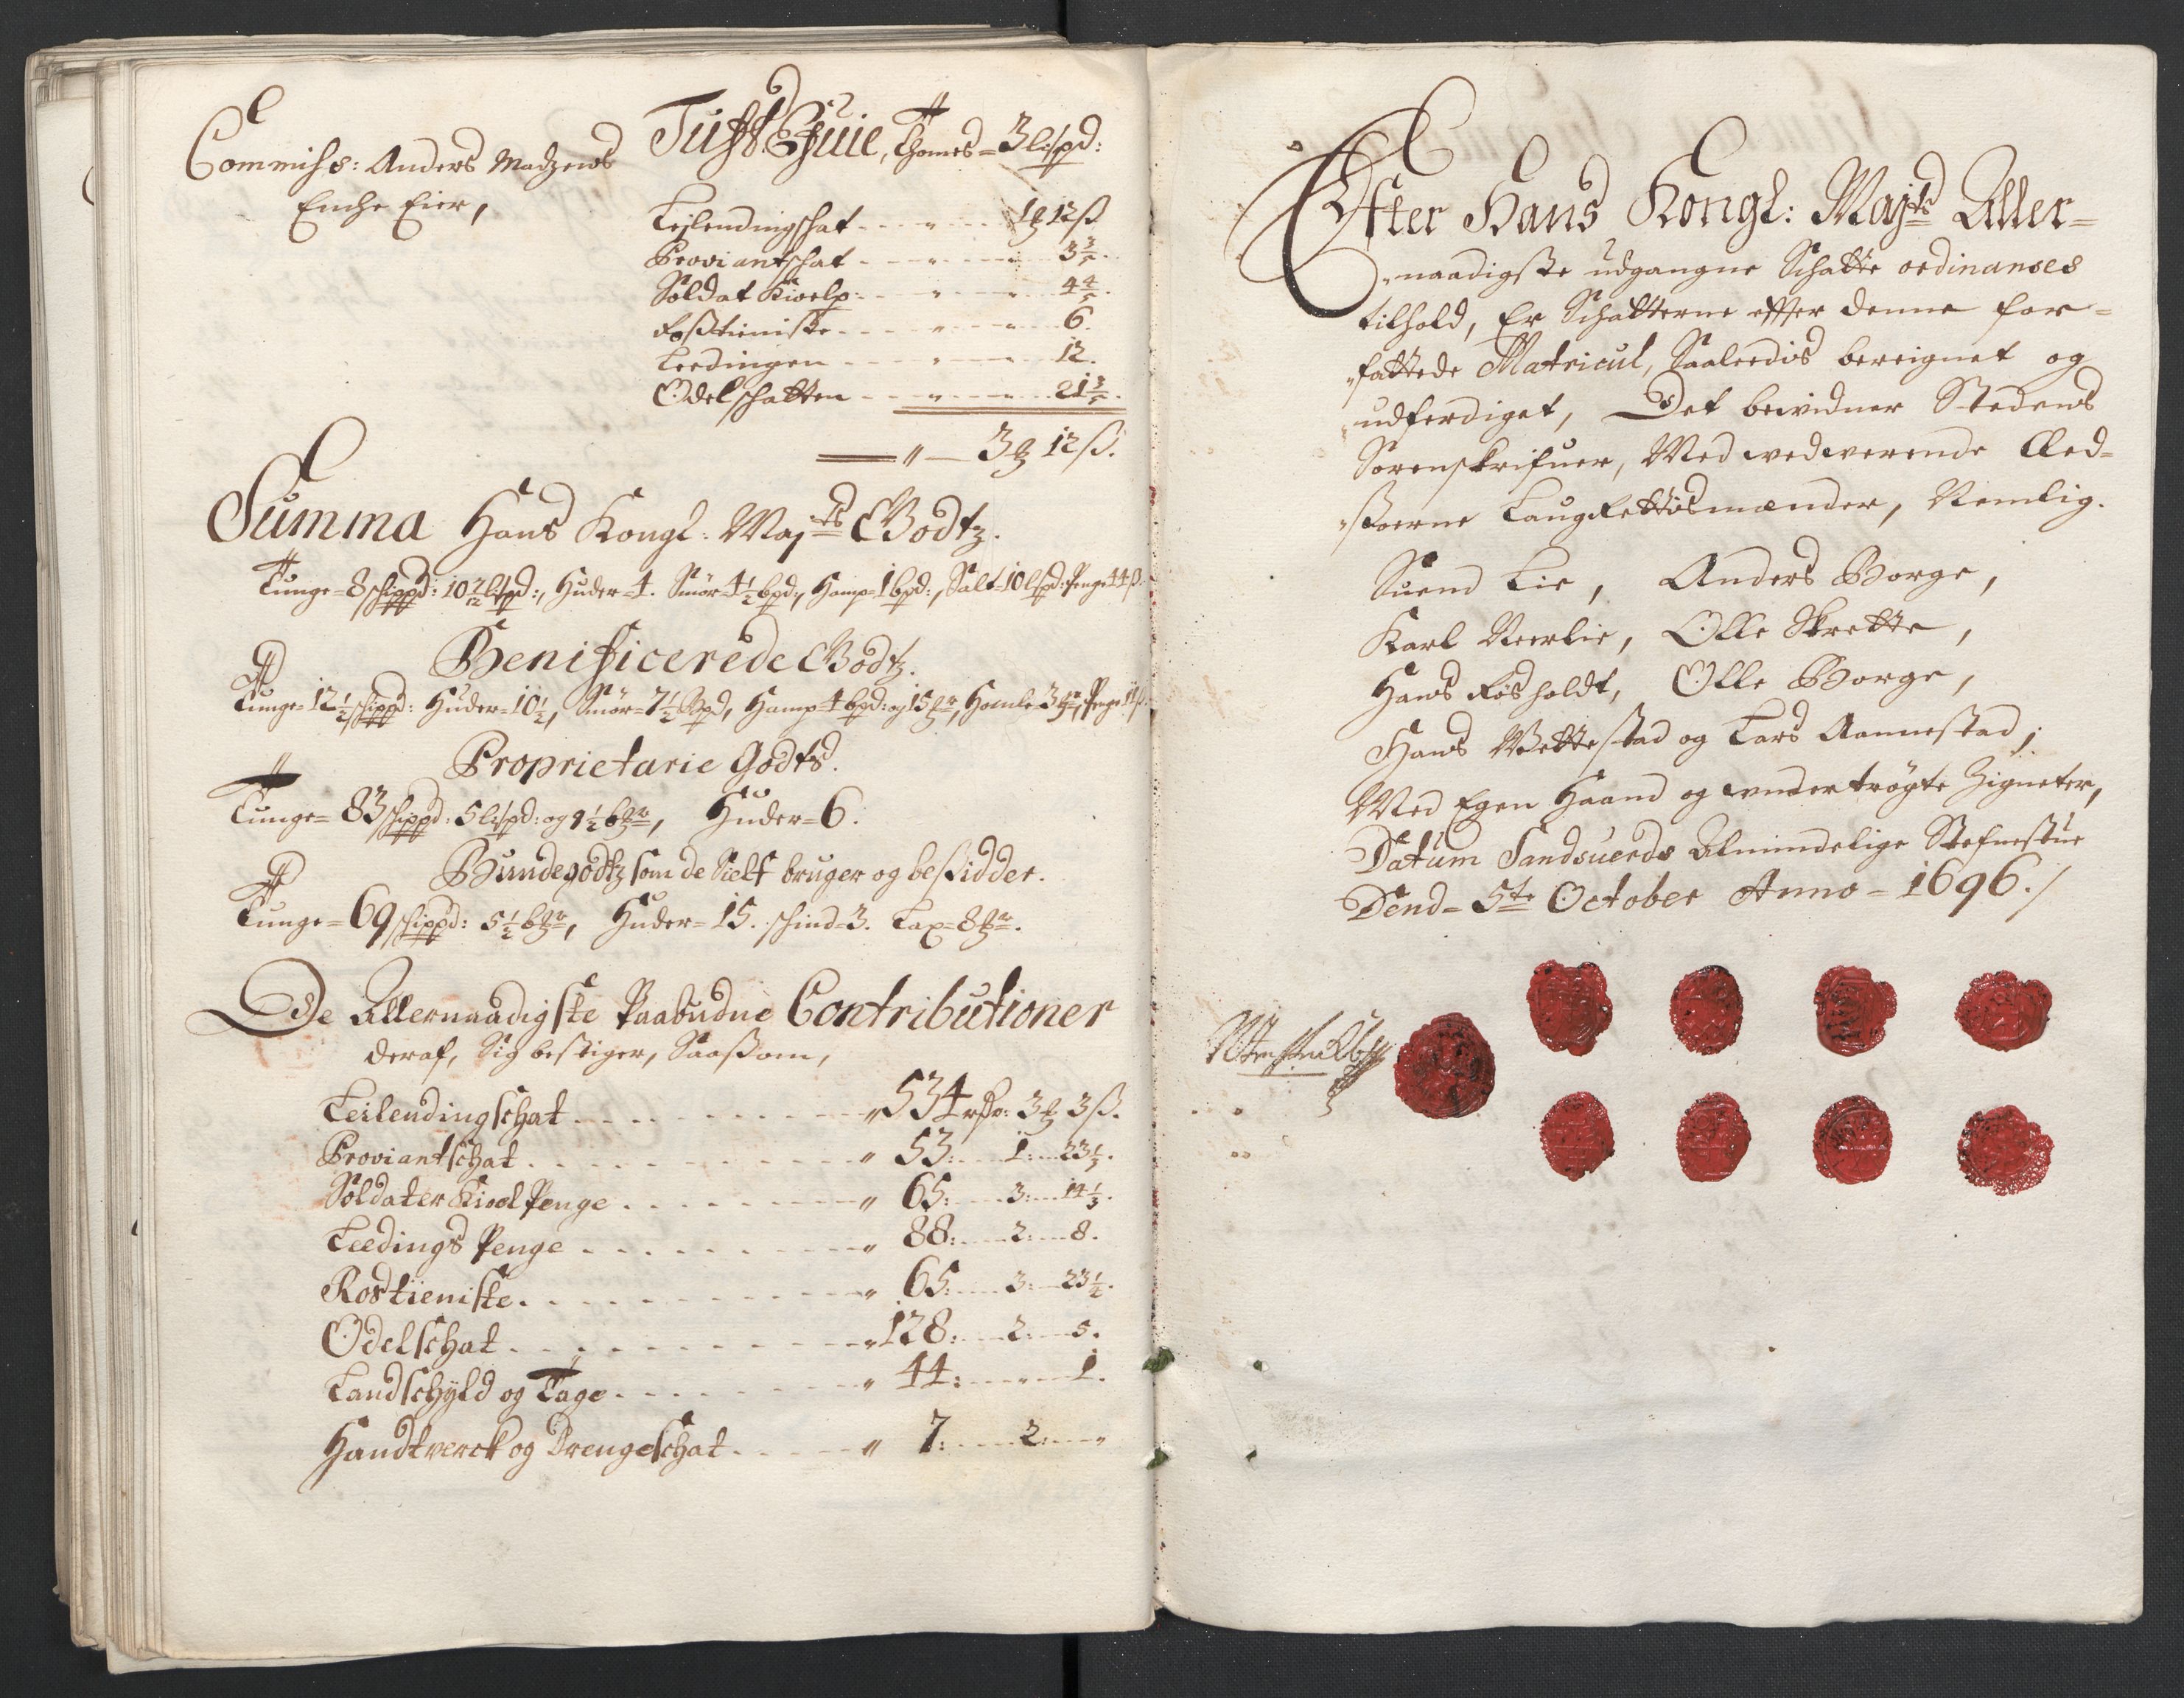 Commihs: Anders Madzens
Enche Eier,
Tufft Ehuie, Thomes = 3 lispd:
Leilendingschat - - - „ - - - 1 ʒ 12 ß
Proviantschat - - - „ - - - 3 3/5.
Soldat Kioelp: - - „ - - „ 4 4/5.
Rosstieniste - - - „ - - „ 6.
Leedingen - - - „ - - - 12.
Odelschatten - - - „ - - - 21 3/5.
„ — 3 ʒ 12 ß.
Summa Hans Kongl: Majts Godtz.
Tunge = 8 schippd: 10 7/12 lispd:, Huder = 4. Smör = 4 1/2 bpd:, Hamp = 1 bpd:, Salt = 10 lispd: Penge 44 ß.
Benificerede Godtz.
Tunge = 12 1/2 schippd: Huder = 10 1/2, Smör = 7 1/2 Bpd, Hamp = 4 bpd: og 15, Homle 3, Penge
Proprietarie Godts.
Tunge = 83 schippd: 5 lispd: og 9 1/2, Huder = 6.
Bundegodtz som de Sielf bruger og besidder.
Tunge = 69 schippd: 5 1/2, Huder = 15. schind = 3. Lax = 8.
De Allernaadigste Paabudne Contributioner
deraf, Sig bestiger, Saassom,
Leilendingschat - - - - „ 534 rdr: 3 ʒ 3 ß.
Proviantschat - - - - „ 53: - 1: - 23 1/3.
Soldater Kioel Penge - - - - „ 65: - 3: - 14 1/3.
Leedings Penge - - - - „ 88: - 2: - 8.
Rostieniste - - - - „ 65: - 3: - 23 1/2.
Odelschat - - - - „ 128: - 2: - 5.
Landschyld og Tage - - - - „ 44: - „ - 1.
Handtverck og Drengeschat - - - - „ 7: - 2: - „
Efter Hans Kongl: Majts Aller=
naadigste udgangne Schatte ordinanses
tilhold, Er Schatterne effter denne for=
fattede Matricul, Saaledis bereignet og
udferdiget, Det bevidner Stedens
Sorenskrifuer, Med vedverende Æed=
sorne Laugrettismænder, Nemlig.
Suend Lie, Anders Borge,
Karl Neerlie, Olle Skrette,
Hans Fosholdt, Olle Borge,
Hans Vettestad og Lars Aannestad;
Med Egen Haand og undertrögte Zigneter,
Datum Sandsuerds Almindelige Stefnestue
Dend = 5te October Anno = 1696./